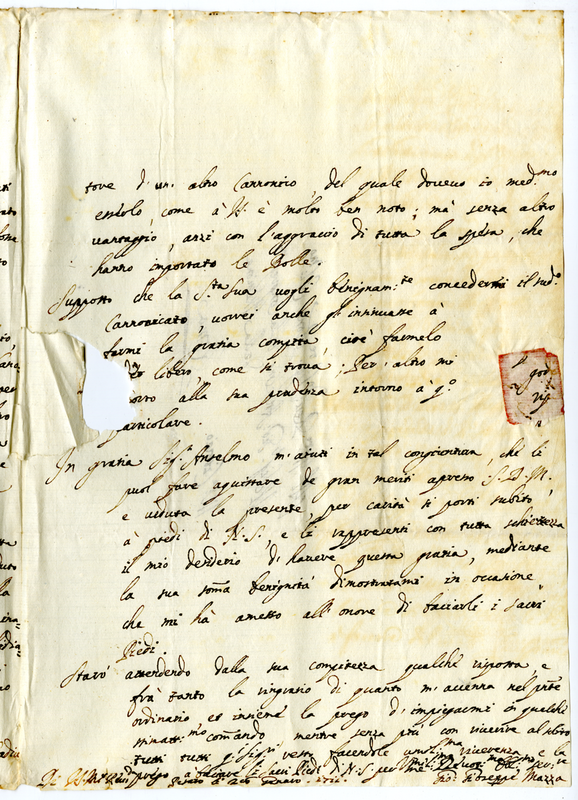 tore d'un altro Canonico, del quale dovevo io med.mo
esserlo, come à V.S. è molto ben noto; mà senza altro
vantaggio, anzi con l'aggravio di tutta la spesa, che
hanno importato le Bolle.
Supposto che la S.ta Sua vogli benignam.te concedermi il sud.o
Canonicato, vorrei anche gl'insinuasse à
farmi la gratia compita cioè farmelo
libero, come si trova; Per altro mi
alla sua prudenza intorno à q.o
particolare.
In gratia Sig.r Anselmo m'aiuti in tal congiontura, che le
puol fare aquistare de gran meriti apresso S.D.M.
e veduta la presente, per carità si porti subito,
à piedi di N.S., e li rappresenti con tutta schiettezza
il mio desiderio di havere questa gratia, mediante
la sua somma benignità dimostratami in occasione
che mi hà amesso all'onore di baciarli i sacri
Piedi.
Starò attendendo dalla sua compitezza qualche risposta e
frà tanto la ringratio di quanto m'accenna nel p.nte
ordinario, et insieme la prego d'impiegarmi in qualche
stimatis.mo comando, mentre senza più con riverire
tutti tutti resto facendole riverenza e la
prego à baciare li sacri Piedi di N.S. per me
Gio. Giuseppe Mazza